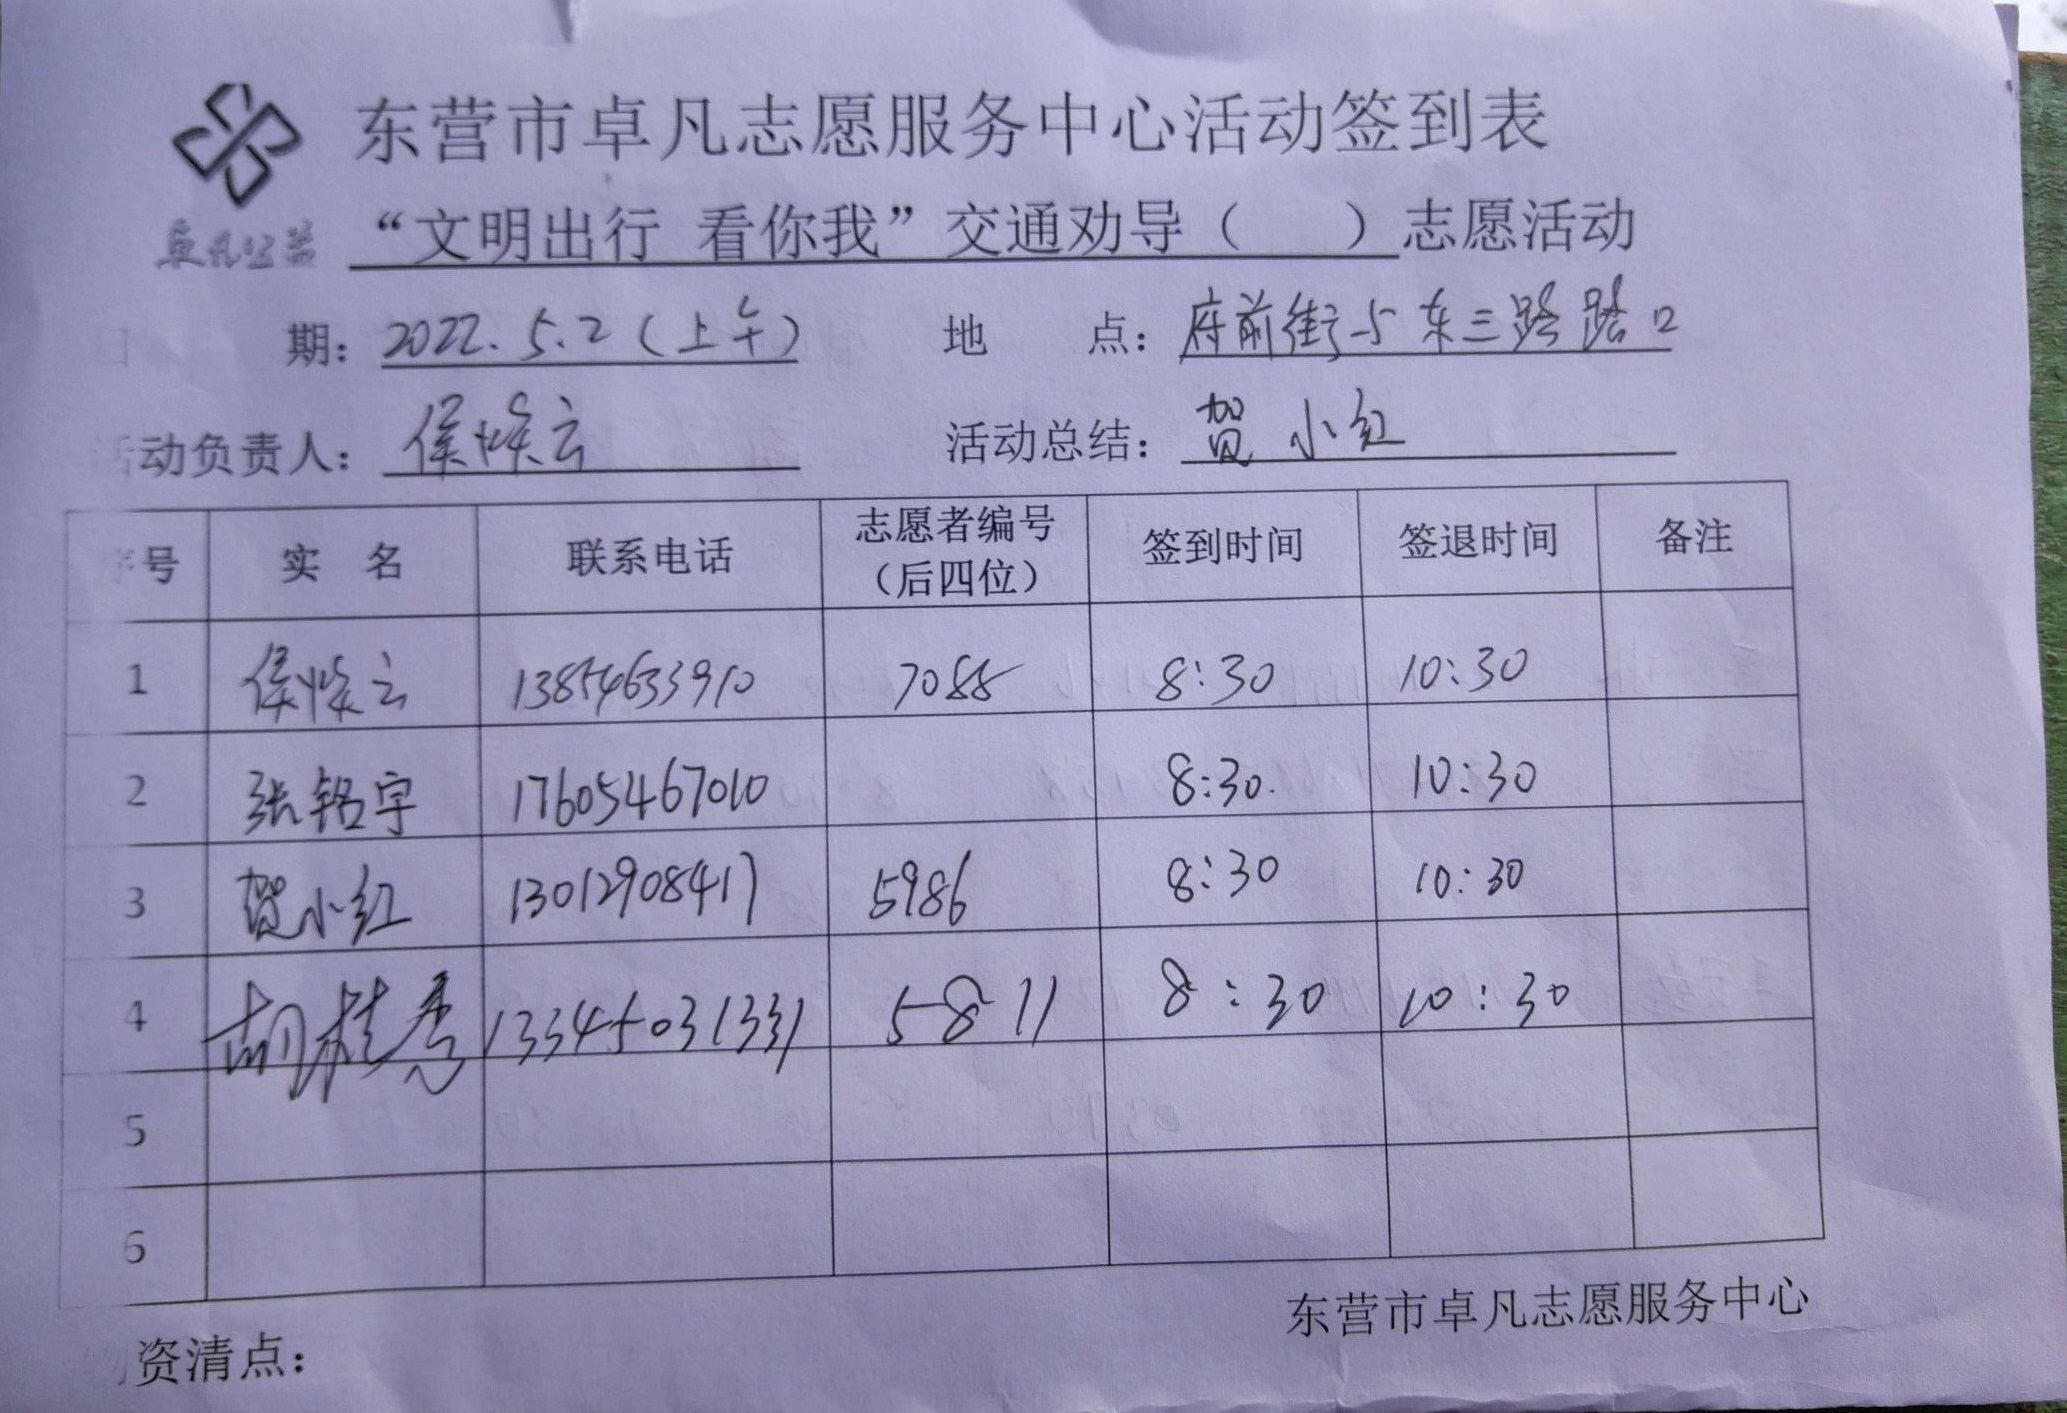 东营市卓凡志愿服务中心活动签到表
卓凡公益
“文明出行 看你我”交通劝导（ ）志愿活动
日 期：2022.5.2（上午） 地 点：府前街与东三路路口
活动负责人：侯焕云 活动总结：贺小红
序号 实 名 联系电话 志愿者编号（后四位） 签到时间 签退时间 备注
1 侯焕云 13854633910 7088 8:30 10:30
2 张铭宇 17605467010 8:30 10:30
3 贺小红 13012908417 5986 8:30 10:30
4 胡桂秀 13345031331 5811 8:30 10:30
5
6
东营市卓凡志愿服务中心
物资清点：